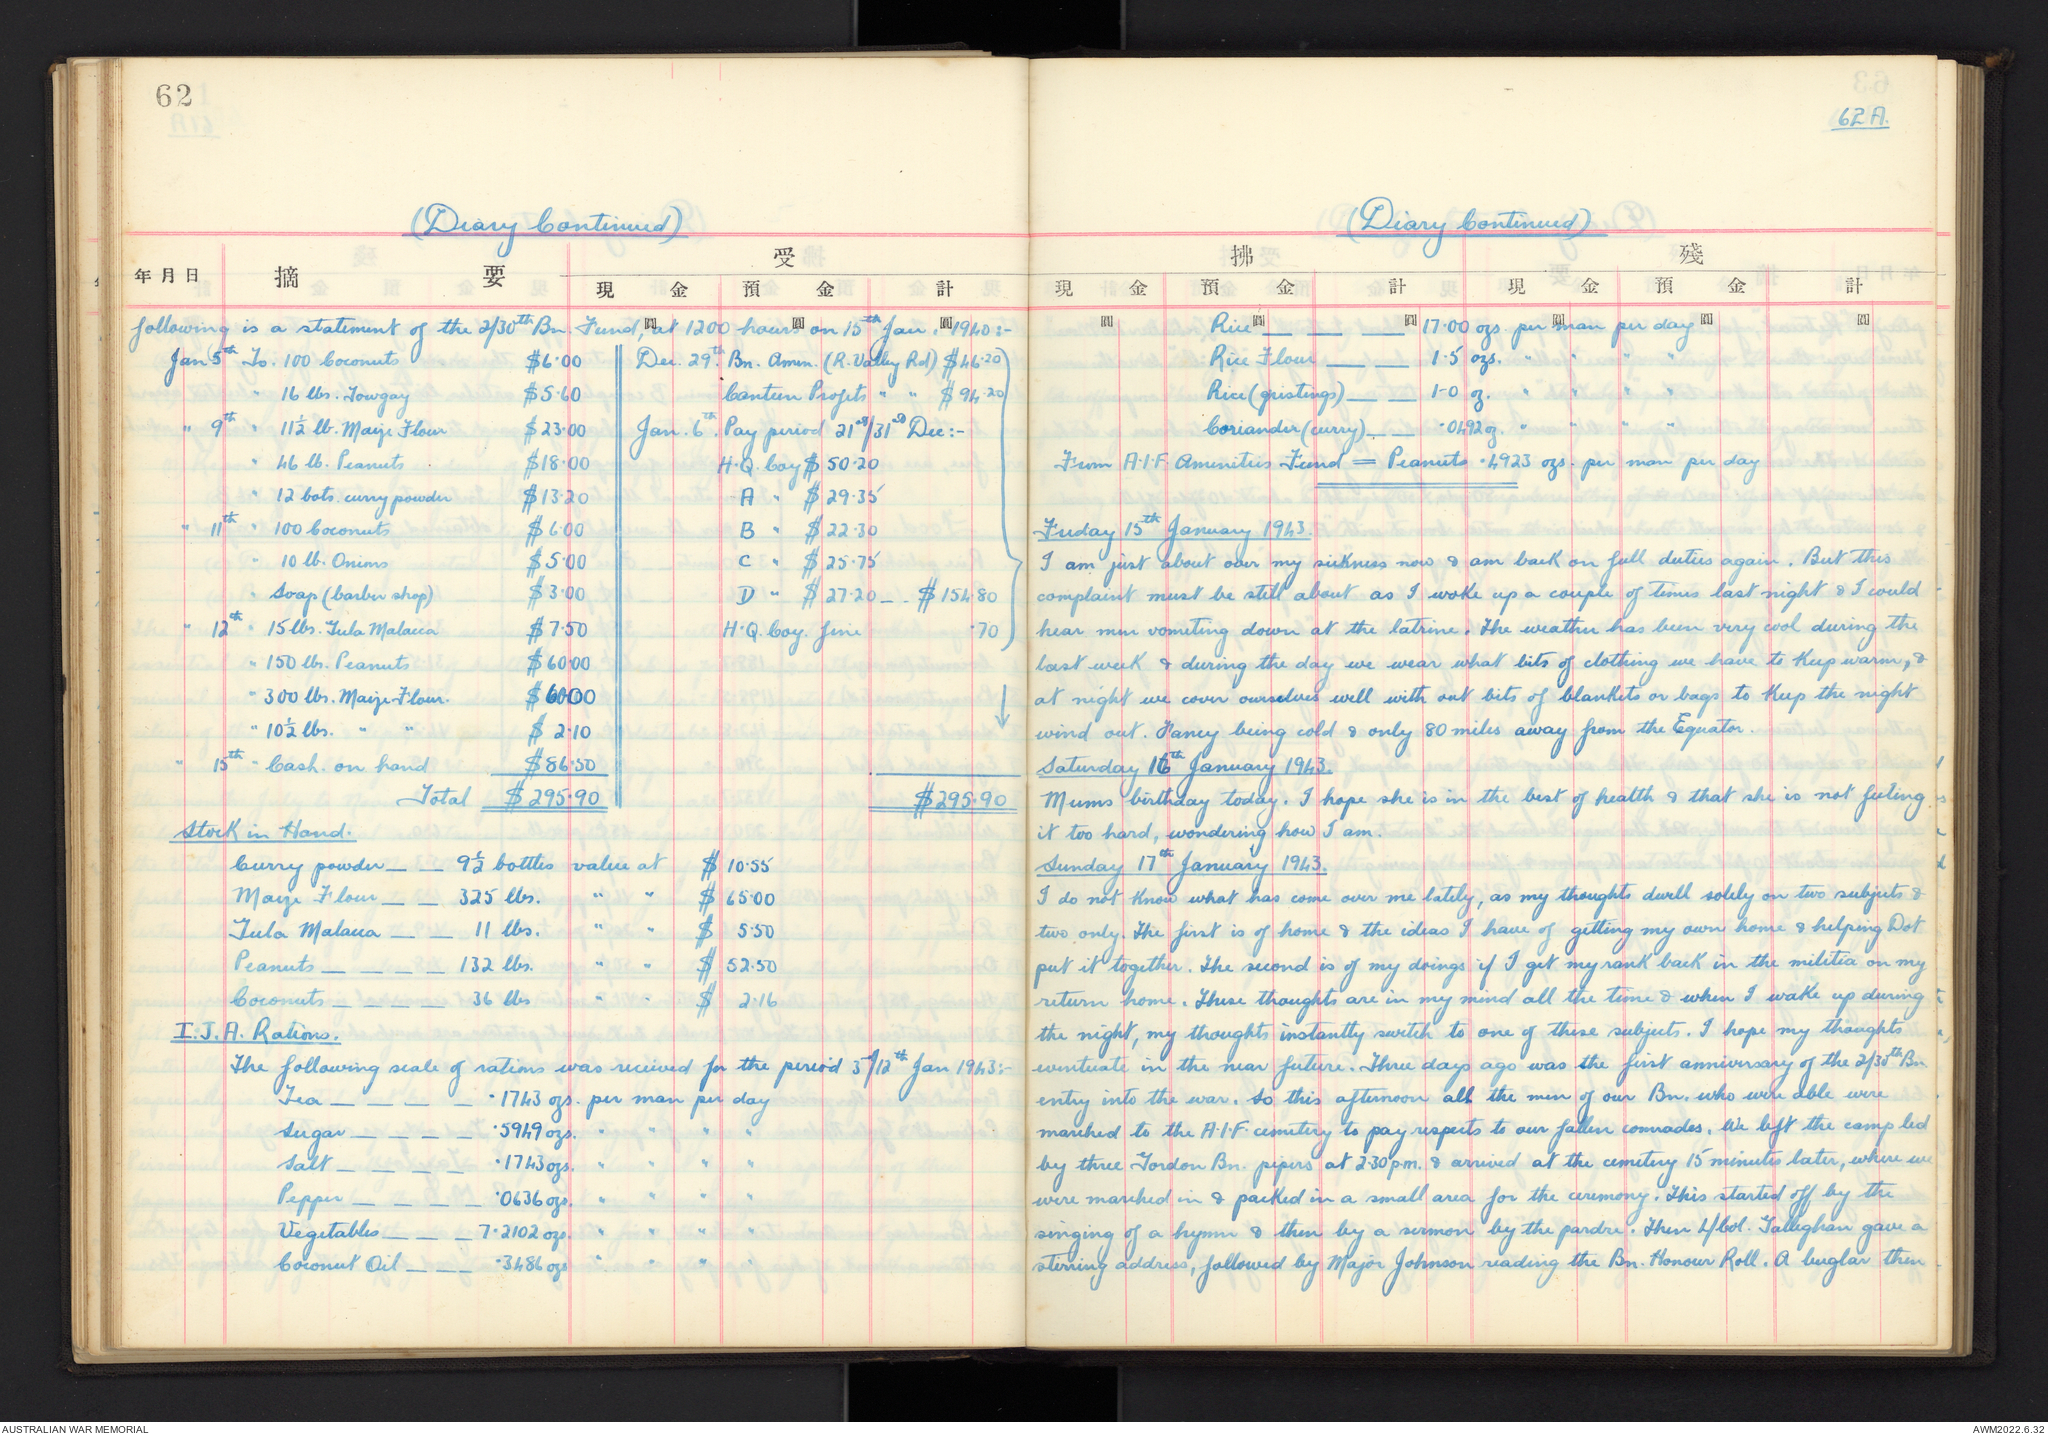 62
(Diary Continued)
年月日 摘要 受
現金 預金 計
following is a statement of the 2/30th Bn. Fund, at 1200 hours on 15th Jan. 1940:-
Jan 5th To. 100 Coconuts $6.00 Dec. 29th. Bn. Amen. (R. Valley Rd) $46.20
" 16 lbs. Towgay $5.60 Canteen Profits " " $94.20
" 9th " 11½ lb. Maize Flour $23.00 Jan. 6th. Pay period 21st/31st Dec:-
" 46 lb. Peanuts $18.00 H.Q. Coy $50.20
" 12 bots. curry powder $13.20 A " $29.35
" 11th " 100 Coconuts $6.00 B " $22.30
" 10 lb. Onions $5.00 C " $25.75
" Soap (barber shop) $3.00 D " $27.20 _ . $154.80
" 12th " 15 lbs. Gula Malacca $7.50 H.Q. Coy. fine .70
" 150 lbs. Peanuts $60.00
" 300 lbs. Maize Flour. $60.00
" 10½ lbs. " " $2.10
" 15th " Cash. on hand $86.50
Total $295.90 $295.90
Stock in Hand.
Curry powder _ _ 9½ bottles value at $10.55
Maize Flour _ _ 325 lbs. " " $65.00
Gula Malacca _ _ 11 lbs. " " $5.50
Peanuts _ _ _ _ 132 lbs. " " $52.50
Coconuts _ _ _ _ 36 lbs " " $2.16
I.J.A. Rations.
The following scale of rations was received for the period 5th/12th Jan 1943:-
Tea _ _ _ _ .1743 ozs. per man per day
Sugar _ _ _ _ .5949 ozs. " " " "
Salt _ _ _ _ .1743 ozs. " " " "
Pepper _ _ _ _ .0636 ozs. " " " "
Vegetables _ _ _ 7.2102 ozs. " " " "
Coconut Oil _ _ _ .3486 ozs " " " "
62A.
(Diary Continued)
拂 殘
現金 預金 計 現金 預金 計
Rice _ _ _ 17.00 ozs. per man per day
Rice Flour _ _ 1.5 ozs. " " " "
Rice (gristings) _ _ 1.0 oz. " " " "
Coriander (curry) _ _ .0492 oz. " " " "
From A.I.F. Amenities Fund = Peanuts .4923 ozs. per man per day
Friday 15th January 1943.
I am just about over my sickness now & am back on full duties again. But this
complaint must be still about as I woke up a couple of times last night & I could
hear men vomiting down at the latrine. The weather has been very cool during the
last week & during the day we wear what bits of clothing we have to keep warm, &
at night we cover ourselves well with out bits of blankets or bags to keep the night
wind out. Fancy being cold & only 80 miles away from the Equator.
Saturday 16th January 1943.
Mums birthday today. I hope she is in the best of health & that she is not feeling
it too hard, wondering how I am.
Sunday 17th January 1943.
I do not know what has come over me lately, as my thoughts dwell solely on two subjects &
two only. The first is of home & the ideas I have of getting my own home & helping Dot
put it together. The second is of my doings if I get my rank back in the militia on my
return home. These thoughts are in my mind all the time & when I wake up during
the night, my thoughts instantly switch to one of these subjects. I hope my thoughts
eventuate in the near future. Three days ago was the first anniversary of the 2/30th Bn.
entry into the war. So this afternoon all the men of our Bn. who were able were
marched to the A.I.F. cemetery to pay respects to our fallen comrades. We left the camp led
by three Gordon Bn. pipers at 2.30 p.m. & arrived at the cemetery 15 minutes later, where we
were marched in & packed in a small area for the ceremony. This started off by the
singing of a hymn & then by a sermon by the pardre. Then L/Col. Galleghan gave a
stirring address, followed by Major Johnson reading the Bn. Honour Roll. A buglar then
AUSTRALIAN WAR MEMORIAL
AWM2022.6.32